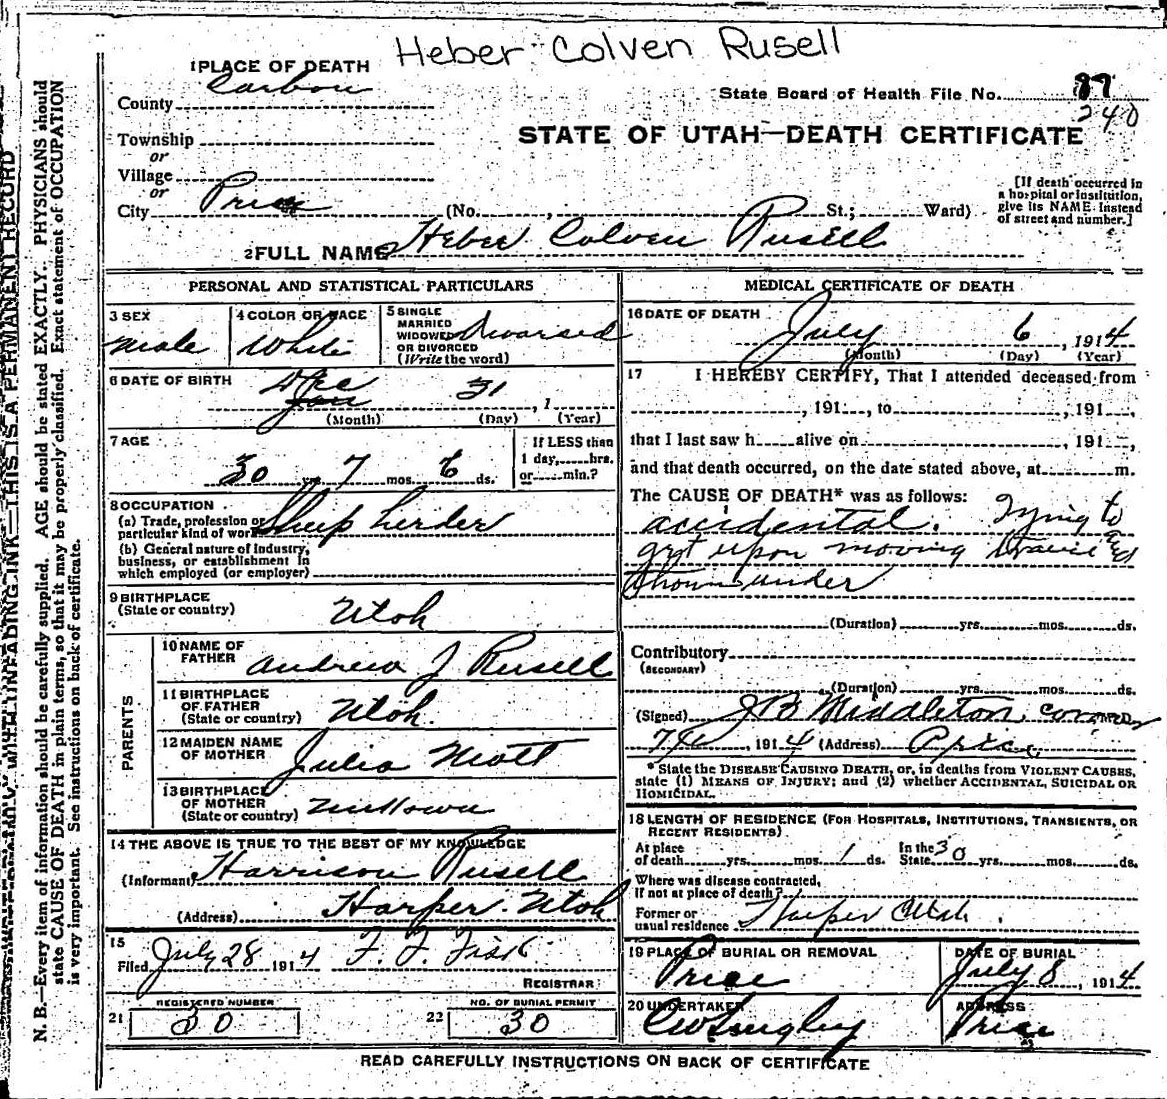 Heber Colven Rusell
1 PLACE OF DEATH
County Carbon
State Board of Health File No. 87
240
STATE OF UTAH—DEATH CERTIFICATE
Township
or
Village
or
City Price
(No. , St.; Ward)
[If death occurred in
a hospital or institution,
give its NAME instead
of street and number.]
2 FULL NAME Heber Colven Rusell
PERSONAL AND STATISTICAL PARTICULARS
3 SEX
male
4 COLOR OR RACE
White
5 SINGLE
MARRIED
WIDOWED
OR DIVORCED
(Write the word)
Divorsed
6 DATE OF BIRTH
Dec
Jan 31 , 1
(Month) (Day) (Year)
7 AGE
30 yrs. 7 mos. 6 ds.
If LESS than
1 day, hrs.
or min.?
8 OCCUPATION
(a) Trade, profession or
particular kind of work Sheep herder
(b) General nature of industry,
business, or establishment in
which employed (or employer)
9 BIRTHPLACE
(State or country)
Utah
PARENTS
10 NAME OF
FATHER
Andrew J Rusell
11 BIRTHPLACE
OF FATHER
(State or country)
Utah.
12 MAIDEN NAME
OF MOTHER
Julia Mott
13 BIRTHPLACE
OF MOTHER
(State or country)
unknown
14 THE ABOVE IS TRUE TO THE BEST OF MY KNOWLEDGE
(Informant) Harrison Rusell
(Address) Harper Utah
15
Filed July 28 1914 F. F. Fisk
REGISTRAR
REGISTERED NUMBER
21 30
NO. OF BURIAL PERMIT
22 30
MEDICAL CERTIFICATE OF DEATH
16 DATE OF DEATH
July 6 , 1914
(Month) (Day) (Year)
17 I HEREBY CERTIFY, That I attended deceased from
, 191 , to , 191 ,
that I last saw h alive on , 191 ,
and that death occurred, on the date stated above, at m.
The CAUSE OF DEATH* was as follows:
accidental. Trying to
get upon moving and
under
(Duration) yrs. mos. ds.
Contributory
(SECONDARY)
(Duration) yrs. mos. ds.
(Signed) J B Middleton, coroner
, 1914 (Address) Price
*State the DISEASE CAUSING DEATH, or, in deaths from VIOLENT CAUSES,
state (1) MEANS OF INJURY; and (2) whether ACCIDENTAL, SUICIDAL OR
HOMICIDAL.
18 LENGTH OF RESIDENCE (FOR HOSPITALS, INSTITUTIONS, TRANSIENTS, OR
RECENT RESIDENTS)
At place
of death yrs. mos. 1 ds.
In the
State 30 yrs. mos. ds.
Where was disease contracted,
if not at place of death?
Former or
usual residence Harper Utah.
19 PLACE OF BURIAL OR REMOVAL
Price
DATE OF BURIAL
July 8 , 1914
20 UNDERTAKER
ADDRESS
Price
READ CAREFULLY INSTRUCTIONS ON BACK OF CERTIFICATE
WITH UNFADING INK—THIS IS A PERMANENT RECORD
N. B.—Every item of information should be carefully supplied. AGE should be stated EXACTLY. PHYSICIANS should
state CAUSE OF DEATH in plain terms, so that it may be properly classified. Exact statement of OCCUPATION
is very important. See instructions on back of certificate.